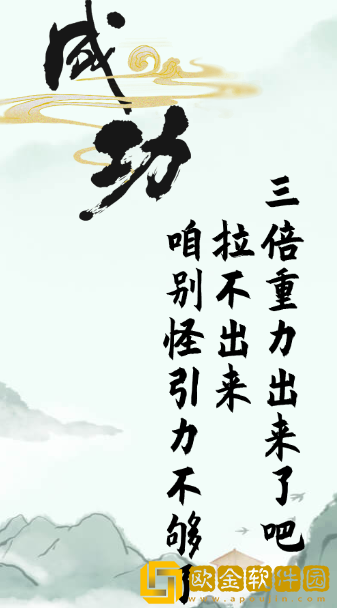 成功
三倍重力出来了吧
拉不出来
咱别怪引力不够了
欧金软件园